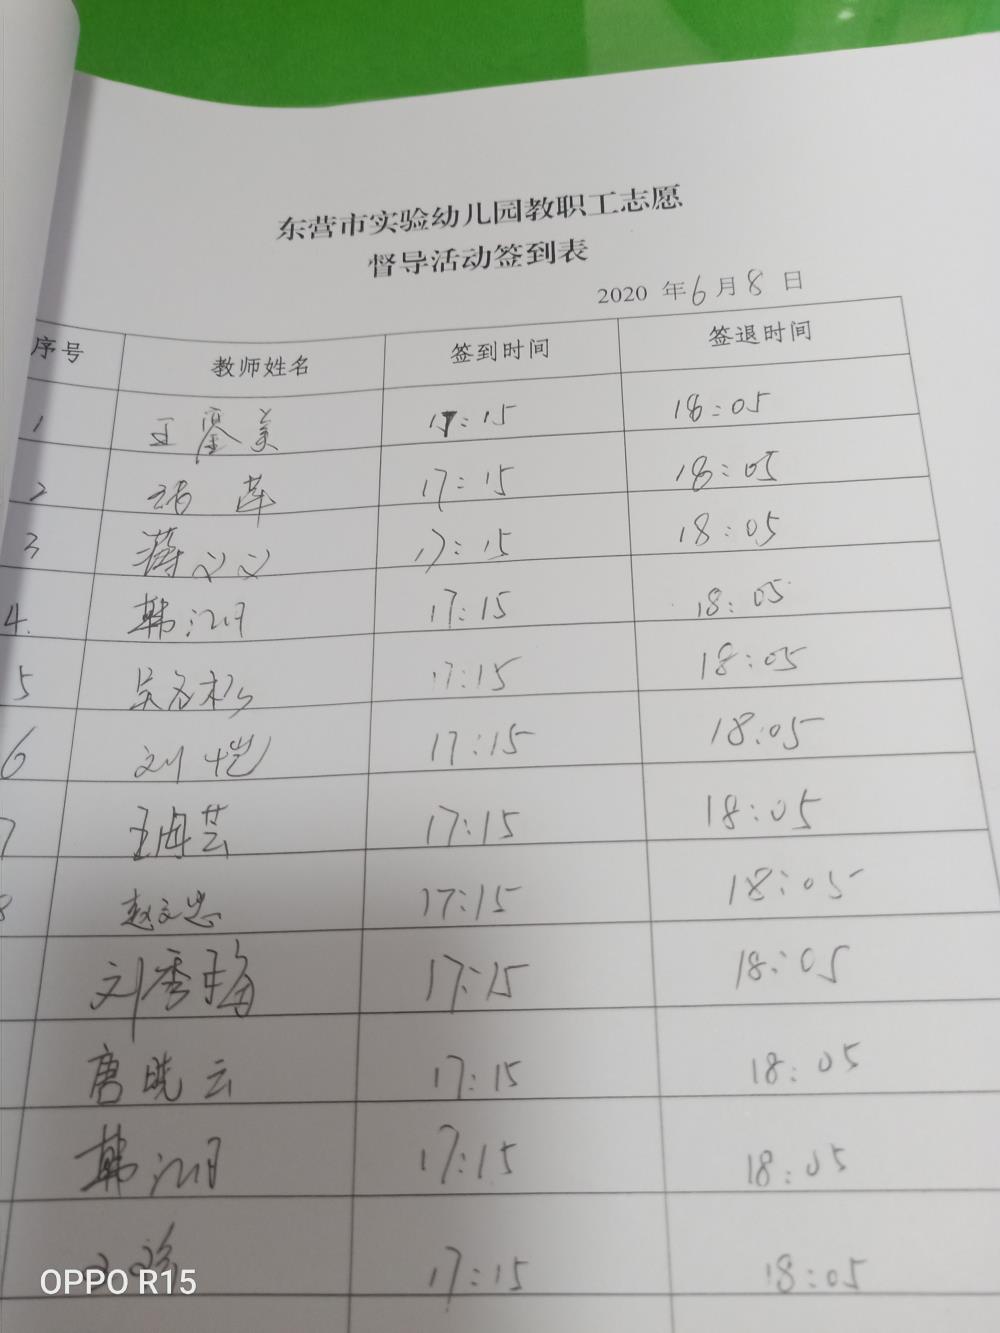 东营市实验幼儿园教职工志愿
督导活动签到表
2020 年6月8日
序号 教师姓名 签到时间 签退时间
1 王鋆美 17:15 18:05
2 17:15 18:05
3 蒋义义 17:15 18:05
4. 韩汌月 17:15 18:05
5 17:15 18:05
6 刘恺 17:15 18:05
7 王海芸 17:15 18:05
8 赵文忠 17:15 18:05
刘秀梅 17:15 18:05
唐晓云 17:15 18:05
韩 17:15 18:05
17:15 18:05
OPPO R15